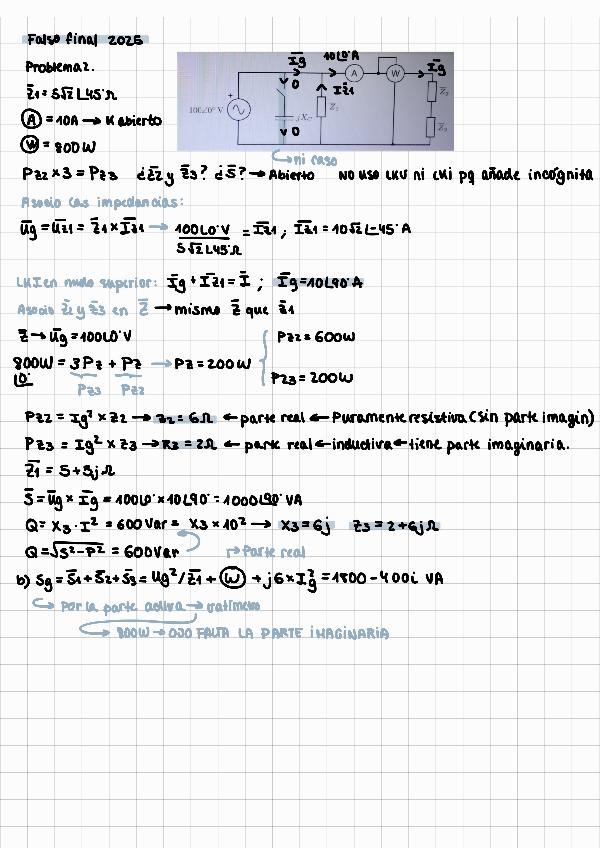 Falso final 2025
Problema 2.
Z̄1 = 5√2 ∟45° Ω
Īg 10∟0° A Īg
Īz1
A W
100∠0° V
jXc Z̄1 Z̄2 Z̄3
0
0
ni caso
Ⓐ = 10A → K abierto
Ⓦ = 800W
Pz2 x 3 = Pz3 ¿Z̄2 y Z̄3? ¿S̄? → Abierto NO USO LKV ni LKI pq añade incógnita
Asocio las impedancias:
Ūg = Ūz1 = Z̄1 x Īz1 → 100∟0° V / 5√2∟45° Ω = Īz1 ; Īz1 = 10√2∟-45° A
LKI en nudo superior: Īg + Īz1 = Ī ; Īg = 10∟90° A
Asocio Z̄2 y Z̄3 en Z̄ → mismo Z̄ que Z̄1
Z̄ → Ūg = 100∟0° V
Pz2 = 600W
800W = 3Pz + Pz → Pz = 200W
∟0° Pz3 Pz2
Pz3 = 200W
Pz2 = Ig² x Z2 → Z2 = 6Ω ← parte real ← Puramente resistiva (sin parte imagin)
Pz3 = Ig² x Z3 → R3 = 2Ω ← parte real ← inductiva ← tiene parte imaginaria.
Z̄1 = 5 + 5j Ω
S̄ = Ūg x Īg = 100∟0° x 10∟90° = 1000∟90° VA
Q = X3 · I² = 600 Var = X3 x 10² → X3 = 6j Z3 = 2 + 6j Ω
Q = √S² - P² = 600 Var Parte real
b) Sg = S̄1 + S̄2 + S̄3 = Ug² / Z̄1 + Ⓦ + j6 x Īg² = 1800 - 400i VA
Por la parte activa → vatímetro
800W → OJO FALTA LA PARTE IMAGINARIA